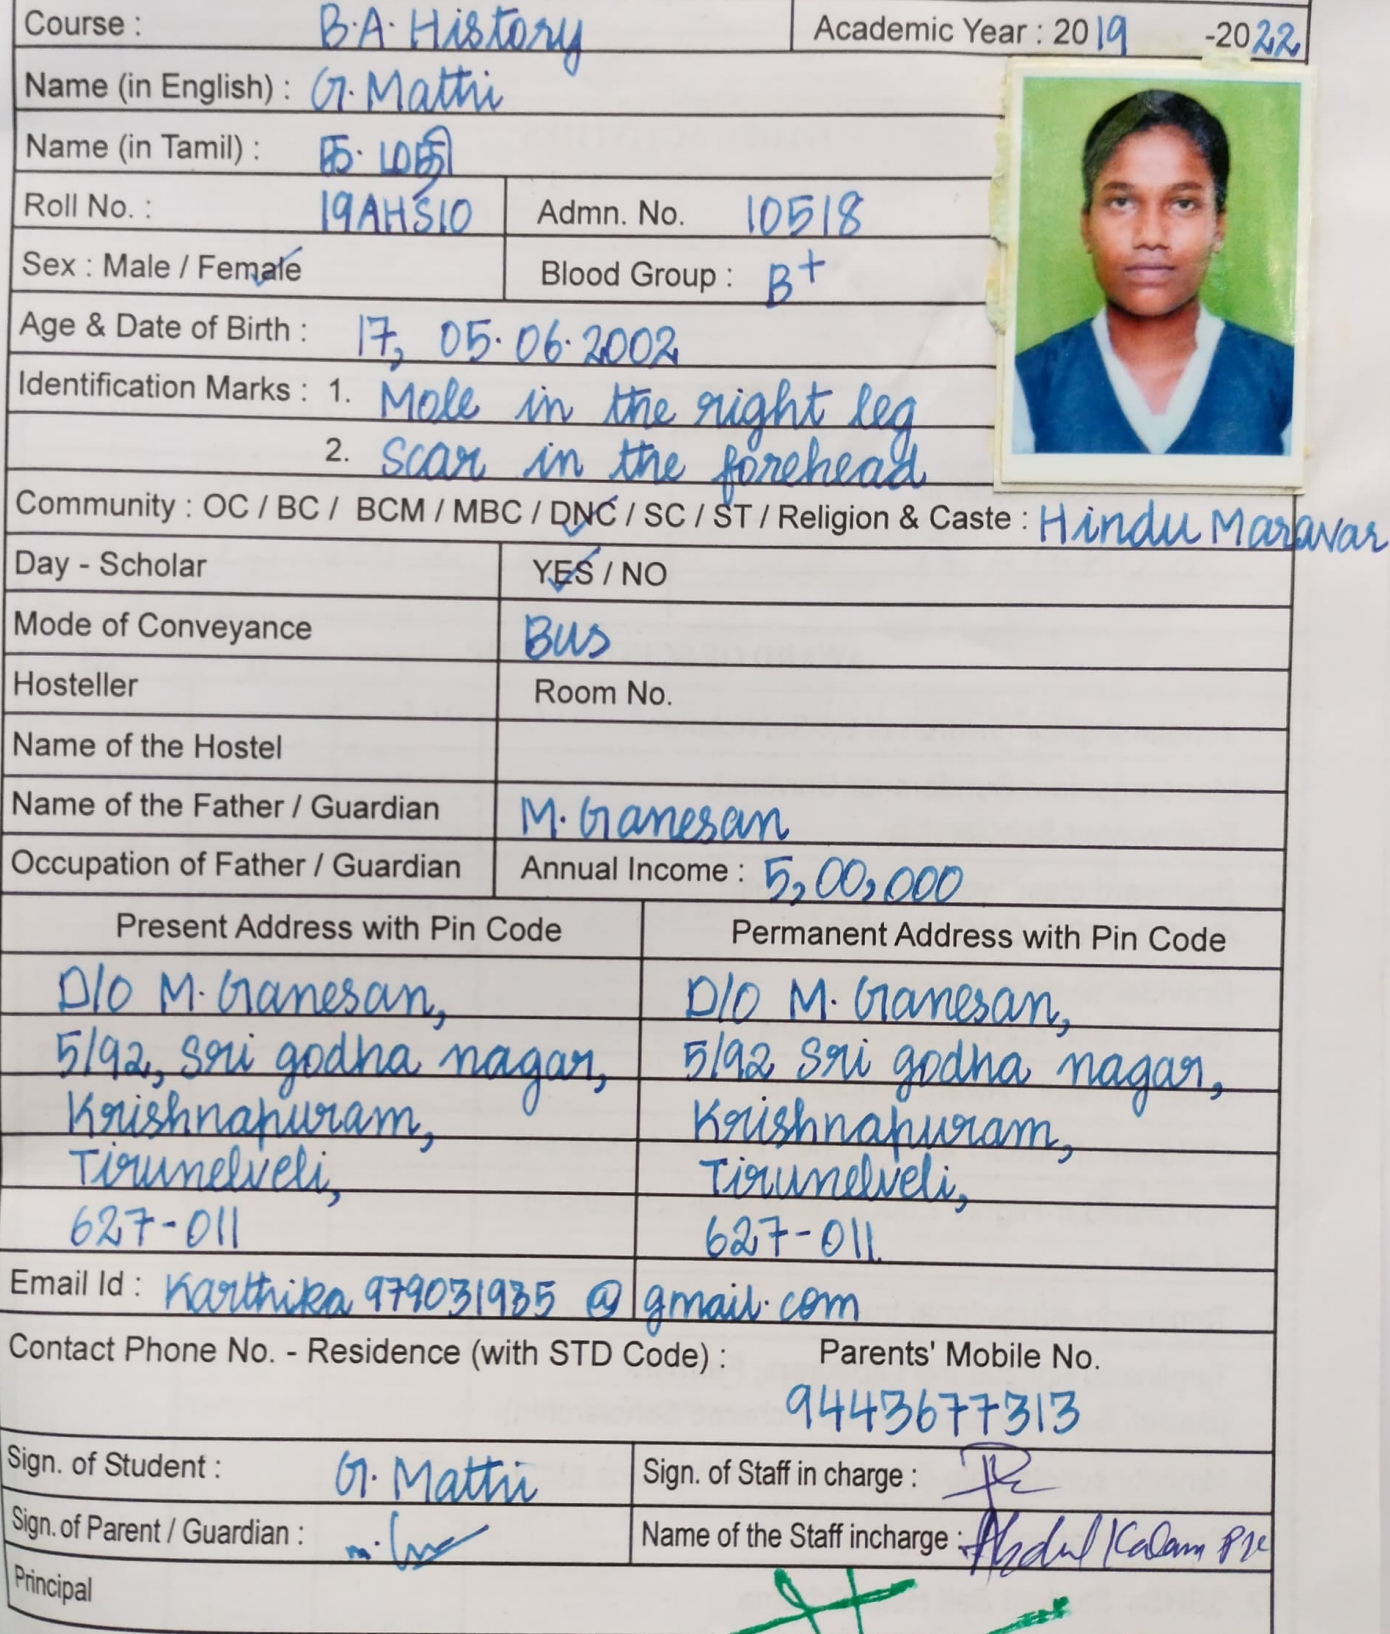 Course : B.A. History Academic Year : 2019 -2022
Name (in English) : G. Mathi
Name (in Tamil) : க. மதி
Roll No. : 19AHS10 Admn. No. 10518
Sex : Male / Female Blood Group : B+
Age & Date of Birth : 17, 05.06.2002
Identification Marks : 1. Mole in the right leg
2. Scar in the forehead
Community : OC / BC / BCM / MBC / DNC / SC / ST / Religion & Caste : Hindu Maravar
Day - Scholar YES / NO
Mode of Conveyance Bus
Hosteller Room No.
Name of the Hostel
Name of the Father / Guardian M. Ganesan
Occupation of Father / Guardian Annual Income : 5,00,000
Present Address with Pin Code Permanent Address with Pin Code
D/O M. Ganesan, D/O M. Ganesan,
5/92, Sri godha nagar, 5/92 Sri godha nagar,
Krishnapuram, Krishnapuram,
Tirunelveli, Tirunelveli,
627-011 627-011
Email Id : Karthika 979031935 @ gmail.com
Contact Phone No. - Residence (with STD Code) : Parents' Mobile No.
9443677313
Sign. of Student : G. Mathi Sign. of Staff in charge :
Sign. of Parent / Guardian : Name of the Staff incharge : Abdul Kalam
Principal